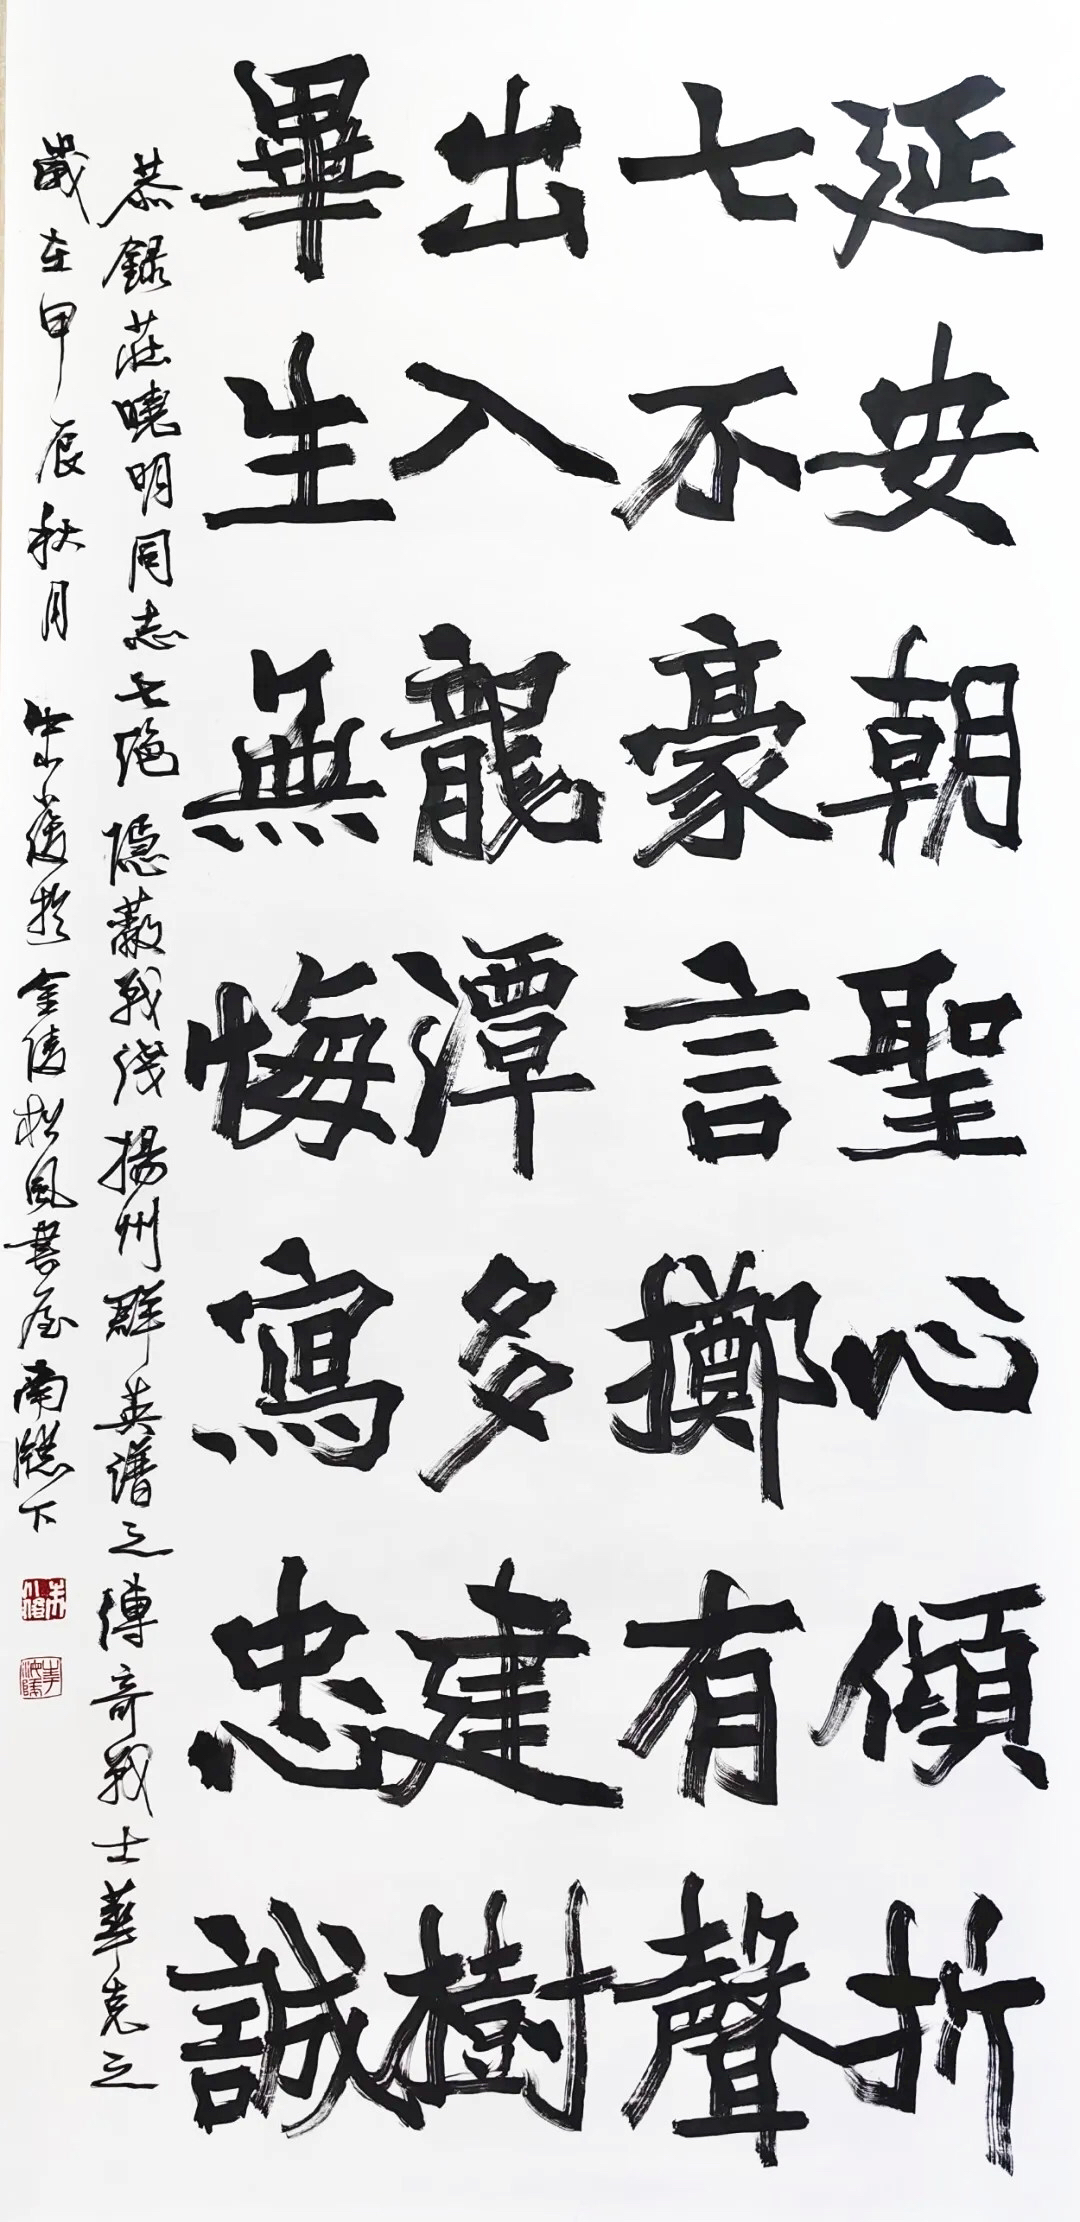 延安朝聖心傾折
七不豪言擲有聲
出入龍潭多建樹
畢生無悔寫忠誠
恭録莊曉明同志七絶隱蔽战线揚州群英譜之傳奇战士華克之
歲在甲辰秋月 金陵松風書屋南牕下